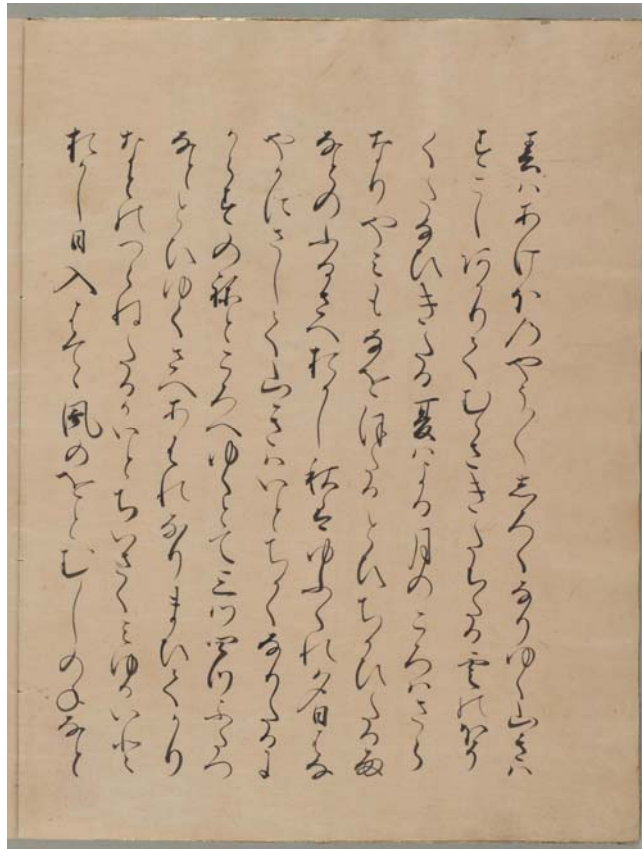 春はあけほのやう〳〵しろくなりゆく山きは
すこしあかりてむらさきたちたる雲のほそ
くたなひきたる夏はよる月のころはさら
なりやみもなをほたるとひちかひたる雨
なとのふるさへおかし秋は夕くれ夕日はな
やかにさして山きはいとちかくなりたるに
からすのねところへゆくとて三つ四つふたつ
なととひゆくさへあはれなりまひてかり
なとのつらねたるかいとちいさくみゆるいと
おかし日入はてゝ風のをとむしのねなと